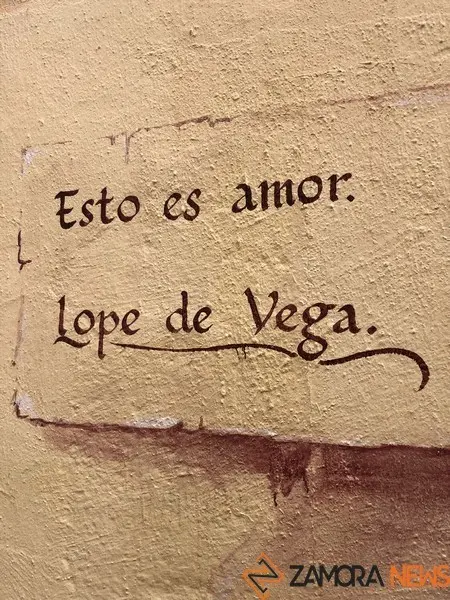 Esto es amor.
Lope de Vega.
ZAMORA NEWS